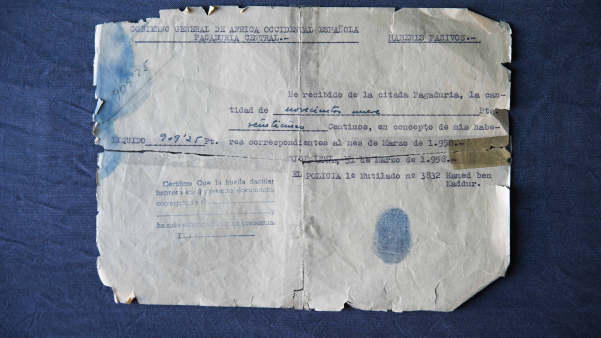 GOBIERNO GENERAL DE AFRICA OCCIDENTAL ESPAÑOLA
PAGADURIA CENTRAL.-
HABERES PASIVOS.-
909'25
He recibido de la citada Pagaduria, la can-
tidad de novecientos nueve Ptas
veinticinco Centimos, en concepto de mis habe-
LIQUIDO 909'25 Pt. res correspondientes al mes de Marzo de 1.958.-
31 de Marzo de 1.958.-
EL POLICIA 1ª Mutilado nº 3832 Hamed ben
Kaddur.
Certifico: Que la huella dactilar
impresa en el presente documento
corresponde a
y
ha sido estampada en mi presencia